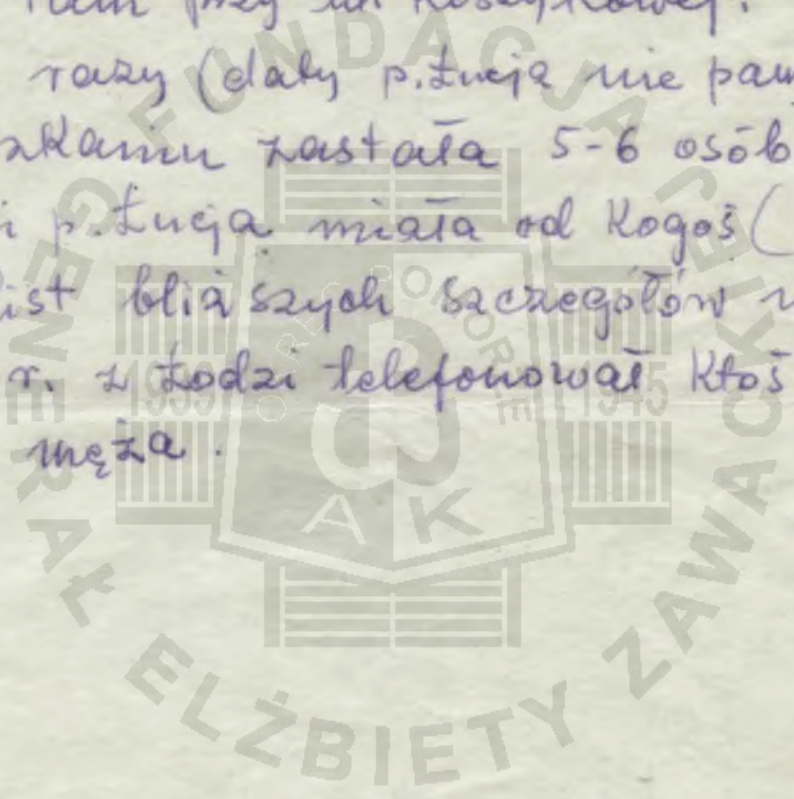 nam przy ul. Koszykowej.
razy (daty p. Łucja nie pam
szkaniu zastała 5-6 osób
i p. Łucja miała od Kogoś (
ist bliższych szczegółów n
r. z Łodzi telefonował Ktoś
męża.
FUNDACJA GENERAŁ ELŻBIETY ZAWACKIEJ
OKRĘG POMORZE
1939 1945
AK